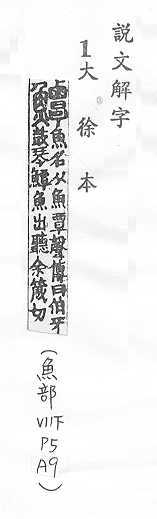 説文解字
1大徐本
鱏魚名从魚覃聲傳曰伯牙
鼓琴鱏魚出聽余箴切
(魚部
VII下
P5
A9)